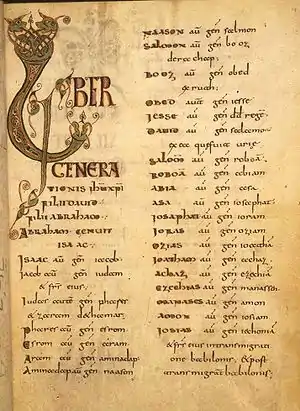 LIBER
GENERA
TIONIS IHU XPI
FILII DAVID
FILII ABRAHAM
ABRAHAM GENUIT
ISAAC
ISAAC aū gen iacob
Iacob aū gen iudam
& frēs eius
Iudas autē gen phares
& zaram dethamar
Phares aū gen esrom
Esrom aū gen aram
Aram aū gen aminadap
Aminadap aū gen naason
NAASON aū gen salmon
SALMON aū gen booz
derachab
BOOZ aū gen obed
exruth
OBED autē gen iesse
IESSE aū gen dd regē
DAVID aū gen salomon
exea quefuit urie
SALOMŌ aū gen roboā
ROBOĀ aū gen abiam
ABIA aū gen asa
ASA aū gen iosaphat
IOSAPHAT aū gen ioram
IORAS aū gen oziam
OZIAS aū gen ioatha
IOATHAM aū gen achaz
ACHAZ aū gen ezechiā
EZECHIAS aū gen manassen
MANASSES aū gen amon
AMON aū gen iosiam
IOSIAS aū gen iechoniā
& frēs eius intransmigrati
one babilonis, & post
transmigrat babilonis,